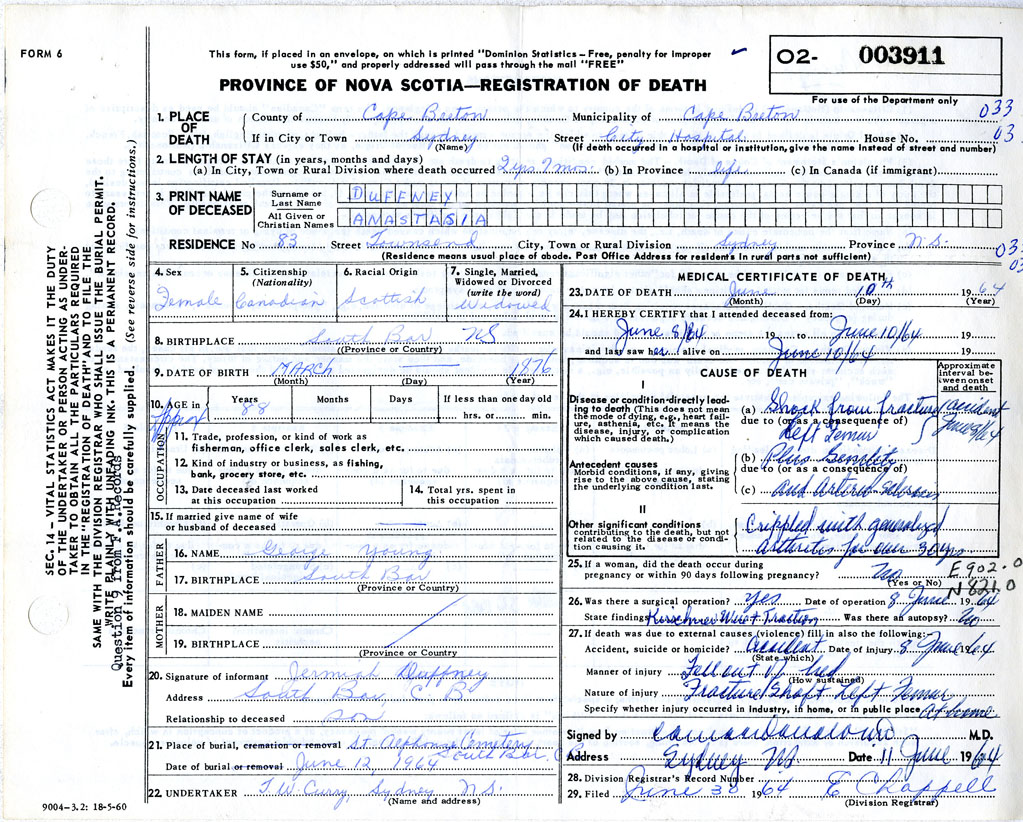 FORM 6
This form, if placed in an envelope, on which is printed "Dominion Statistics – Free, penalty for improper
use $50," and properly addressed will pass through the mail "FREE"
02- 003911
For use of the Department only
PROVINCE OF NOVA SCOTIA—REGISTRATION OF DEATH
033
03
1. PLACE OF DEATH
County of Cape Breton Municipality of Cape Breton
If in City or Town Sydney (Name) Street City Hospital House No.
(If death occurred in a hospital or institution, give the name instead of street and number)
2. LENGTH OF STAY (in years, months and days)
(a) In City, Town or Rural Division where death occurred 2 yrs 7 mos. (b) In Province life (c) In Canada (if immigrant)
3. PRINT NAME OF DECEASED
Surname or Last Name DUFFNEY
All Given or Christian Names ANASTASIA
RESIDENCE No 83 Street Townsend City, Town or Rural Division Sydney Province N.S.
(Residence means usual place of abode. Post Office Address for residents in rural parts not sufficient)
033
03
4. Sex
Female
5. Citizenship (Nationality)
Canadian
6. Racial Origin
Scottish
7. Single, Married, Widowed or Divorced (write the word)
Widowed
8. BIRTHPLACE South Bar NS
(Province or Country)
9. DATE OF BIRTH MARCH — 1876
(Month) (Day) (Year)
10. AGE in Approx
Years 88 Months Days If less than one day old
hrs. or min.
OCCUPATION
11. Trade, profession, or kind of work as
fisherman, office clerk, sales clerk, etc.
12. Kind of industry or business, as fishing,
bank, grocery store, etc.
13. Date deceased last worked
at this occupation
14. Total yrs. spent in
this occupation
15. If married give name of wife
or husband of deceased —
FATHER
16. NAME George Young
17. BIRTHPLACE South Bar
MOTHER
18. MAIDEN NAME
19. BIRTHPLACE
(Province or Country)
20. Signature of informant Jermiah Duffney
Address South Bar, C B
Relationship to deceased son
21. Place of burial, cremation or removal St Alphonse Cemetery
South Bar, C
Date of burial or removal June 12, 1964
22. UNDERTAKER T. W. Curry, Sydney N.S.
(Name and address)
9004-3.2: 18-5-60
SEC. 14 – VITAL STATISTICS ACT MAKES IT THE DUTY
OF THE UNDERTAKER OR PERSON ACTING AS UNDER-
TAKER TO OBTAIN ALL THE PARTICULARS REQUIRED
IN THE "REGISTRATION OF DEATH" AND TO FILE THE
SAME WITH THE DIVISION REGISTRAR WHO SHALL ISSUE THE BURIAL PERMIT.
WRITE PLAINLY WITH UNFADING INK. THIS IS A PERMANENT RECORD.
Question 9 from F.A. Records
Every item of information should be carefully supplied. (See reverse side for instructions.)
MEDICAL CERTIFICATE OF DEATH
23. DATE OF DEATH June 10th 1964
(Month) (Day) (Year)
24. I HEREBY CERTIFY that I attended deceased from:
June 8/64 19 to June 10/64 19
and last saw her alive on June 10/64 19
CAUSE OF DEATH
Approximate interval between onset and death
I
Disease or condition directly leading to death (This does not mean the mode of dying, e.g., heart failure, asthenia, etc. It means the disease, injury, or complication which caused death.)
(a) Shock from fracture
due to (or as a consequence of)
left femur
accident
June 8/64
Antecedent causes
Morbid conditions, if any, giving rise to the above cause, stating the underlying condition last.
(b) Plus Senility
due to (or as a consequence of)
(c) and Arterio sclerosis
II
Other significant conditions contributing to the death, but not related to the disease or condition causing it.
Crippled with generalized
Arthritis for over 30 yrs
25. If a woman, did the death occur during
pregnancy or within 90 days following pregnancy? No
(Yes or No)
E902.0
N821.0
26. Was there a surgical operation? yes Date of operation 8 June 1964
State findings Kirschner Wire Traction Was there an autopsy? No
27. If death was due to external causes (violence) fill in also the following:
Accident, suicide or homicide? Accident Date of injury 8 June 1964
(State which)
Manner of injury Fell out of bed
(How sustained)
Nature of injury Fracture Shaft Left Femur
Specify whether injury occurred in Industry, in home, or in public place At home
Signed by M.D.
Address Sydney NS Date 11 June 1964
28. Division Registrar's Record Number
29. Filed June 30 1964 E Chappell
(Division Registrar)